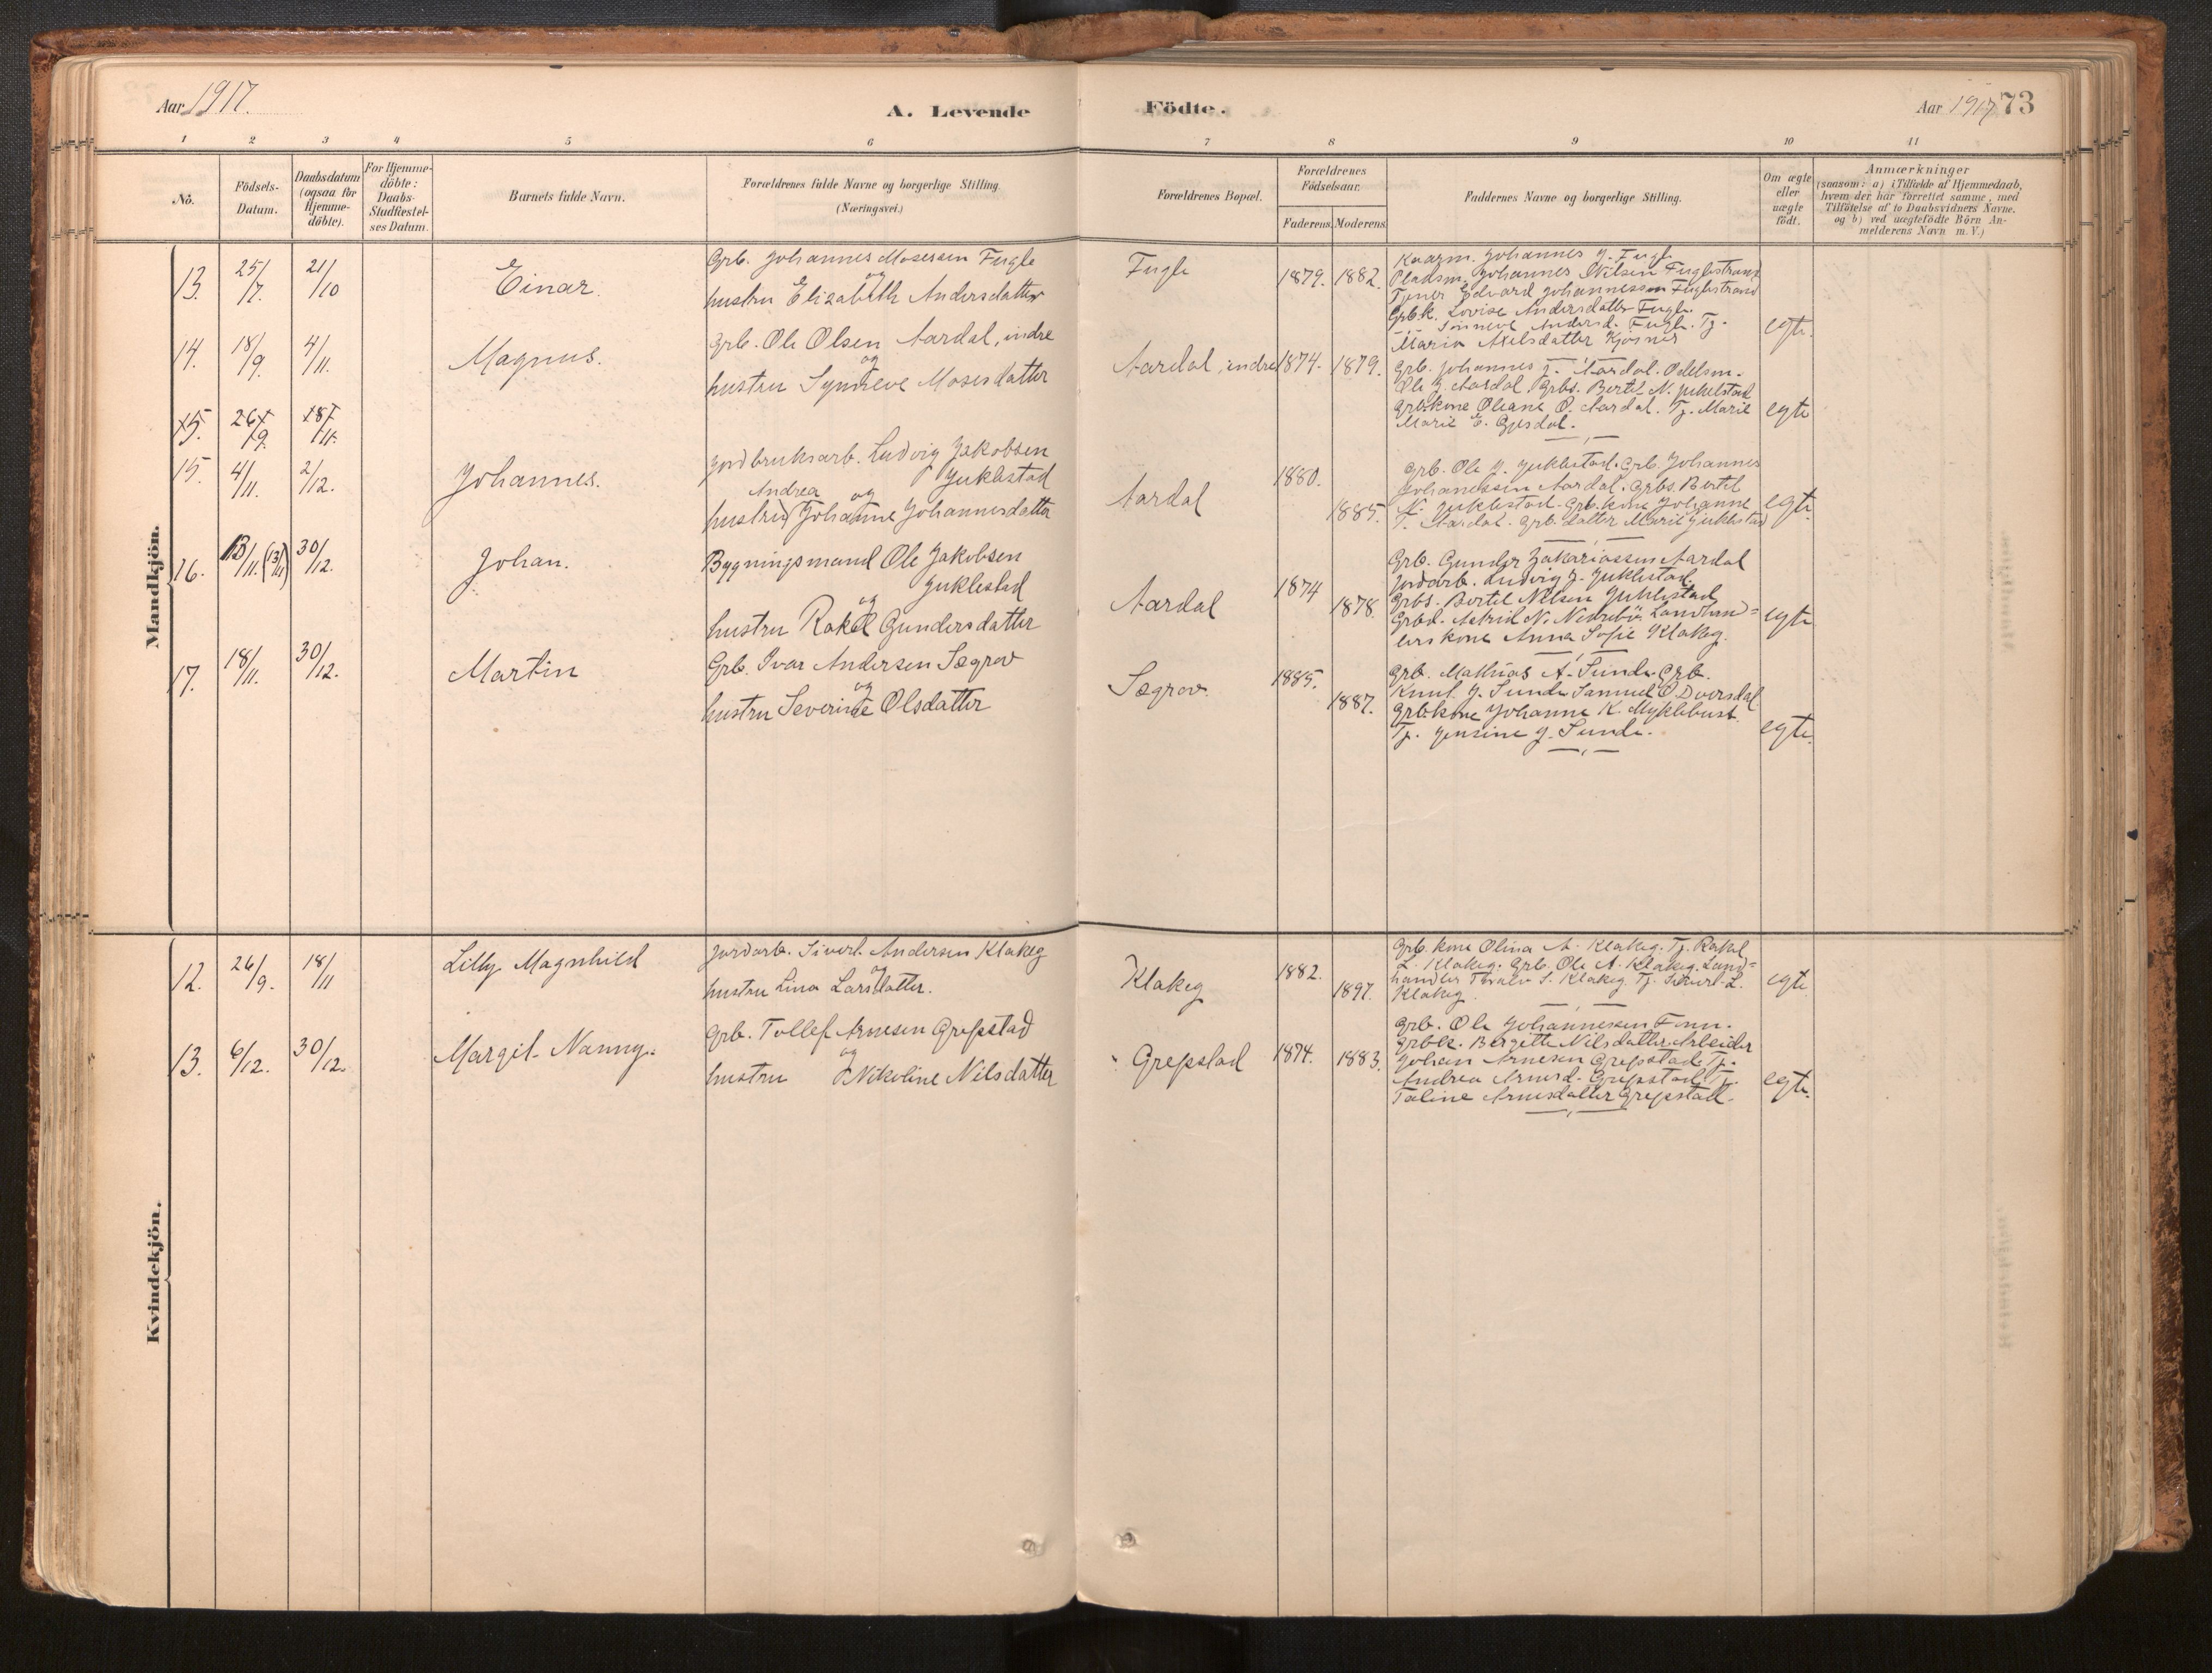 Aar 1917.
A. Levende
Födte.
Aar 1917 73
1 2 3 4 5 6 7 8 9 10 11
Nò.
Födsels-
Datum.
Daabsdatum
(ogsaa for
Hjemme-
döbte).
For Hjemme-
döbte:
Daabs-
Stadfæstel-
ses Datum.
Barnets fulde Navn.
Forældrenes fulde Navne og borgerlige Stilling.
(Næringsvei.)
Forældrenes Bopæl.
Forældrenes
Födselsaar.
Faderens. Moderens.
Faddernes Navne og borgerlige Stilling.
Om ægte
eller
uægte
födt.
Anmærkninger
(saasom: a) i Tilfælde af Hjemmedaab,
hvem der har forrettet samme, med
Tilföielse af to Daabsvidners Navne,
og b) ved uægtefödte Börn An-
melderens Navn m. V.)
Mandkjön.
13. 25/7. 21/10 Einar.
Grb. Johannes Mosessen Fugle
og
hustru Elizabeth Andersdatter
Fugle 1879. 1882.
Kaarm. Johannes J. Fugle
Pladsm. Johannes Nilsen Fuglestrand
Tjener Edvard Johannessen Fuglestrand
Grbk. Lovise Andersdatter Fugle.
Synneve Andersd. Fugle. Tj.
Maria Axelsdatter Kjøsnes
egte.
14. 18/9. 4/11. Magnus.
Grb. Ole Olsen Aardal, indre
og
hustru Synneve Mosesdatter
Aardal, indre 1874. 1879.
Grb. Johannes J. Aardal. Odelsm.
Ole J. Aardal. Grbs. Bertil N. Juklestad
Grbkone Oliane O. Aardal. Tj. Marie
Marie E. Gjesdal.
egte
15. 26/9. 18/11.
15. 4/11. 2/12. Johannes.
Jordbruksarb. Ludvig Jakobsen
Juklestad
Andrea og
hustru Johanne Johannesdatter
Aardal 1880. 1885.
Grb. Ole J. Juklestad. Grb. Johannes
Johannessen Aardal. Grbs. Bertil
N. Juklestad. Grb. kone Johanne
T. Aardal. Grb. datter Marie Juklestad
egte.
16. 13/11. (13/11) 30/12. Johan.
Bygningsmand Ole Jakobsen
Juklestad
og
hustru Rakel Gundersdatter
Aardal 1874 1878.
Grb. Gunder Zakariassen Aardal
Jordarb. Ludvig J. Juklestad
Grbs. Bertil Nilsen Juklestad
Grbd. Astrid N. Nedrebö. Landhand=
lerskone Anna Sofie Klakeg.
egte
17. 18/11. 30/12. Martin
Grb. Ivar Andersen Sægrov
og
hustru Severine Olsdatter
Sægrov. 1885. 1887.
Grb. Mathias A. Sunde Grb.
Knut J. Sunde Samuel O Dvergsdal
Grbkone Johanne K. Myklebust.
Tj. Jensine J. Sunde.
egte.
Kvindekjön.
12. 26/9. 18/11 Lilly Magnhild
Jordarb. Sivert Andersen Klakeg
og
hustru Lina Larsdatter.
Klakeg 1882. 1897.
Grb. kone Olina A. Klakeg. Tj. Rakel
L. Klakeg. Grb. Ole A. Klakeg. Land=
handler S. Klakeg. Tj. Sivert L.
Klakeg.
egte
13. 6/12. 30/12. Margit Nanny.
Grb. Tollef Arnesen Grepstad
og
hustru Nikoline Nilsdatter
Grepstad 1874. 1883.
Grb. Ole Johannessen Fonn.
Grbk. Bergitte Nilsdatter. Arbeider
Johan Arnesen Grepstad. Tj.
Andrea Arnesd. Grepstad. Tj.
Taline Arnesdatter Grepstad.
egte.